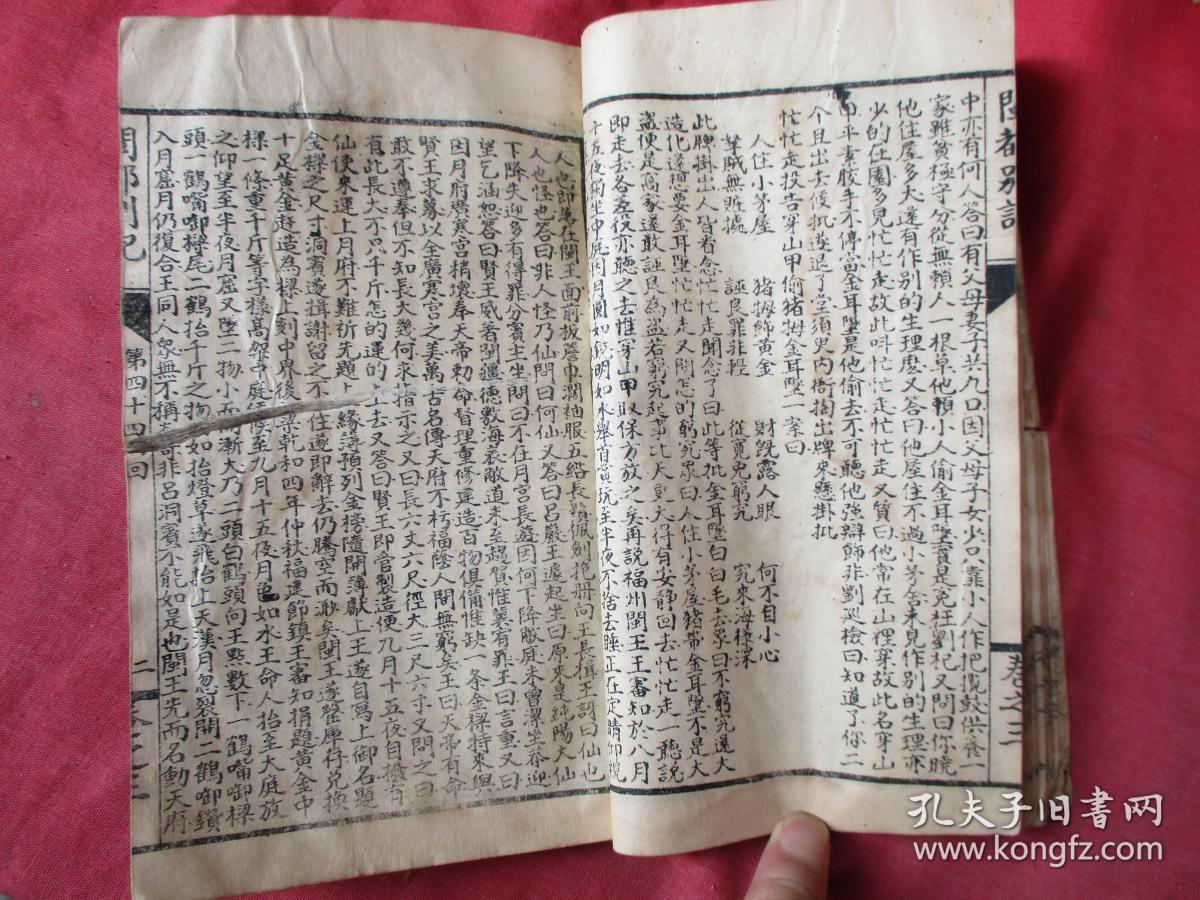 閩都別記
卷之三
中亦有何人答曰有父母妻子共九口因父母子女少只靠小人作把攬鼓供養一
家雖貧極守分從無賴人一根草他賴小人偷金耳墜實是冤枉劉杞又問曰你曉
他住屋多大還有作別的生理麼又答曰他屋住不過小茅舍未見作別的生理亦
少的在園多見忙忙走故此呌忙忙走忙忙走又質曰他常在山裡穿故此名穿山
甲平素脚手不停當金耳墜是他偷去不可聽他強辯師非劉巡檢曰知道了你二
个且出去候批遂退了堂須臾内衙掲出牌來懸掛批
忙忙走投告穿山甲偷猪拇金耳墜一案曰
人住小茅屋 猪拇飾黃金 財戲露人眼 何不自小心
拏賊無賍據 誣良罪非輕 從寛免窮究 究來海樣深
此牌掛出人皆看念忙忙走聞念了曰此等批金耳墜白白毛去衆曰不窮究還大
造化遂想要金耳墜忙忙走又問怎的窮究衆曰人住小茅屋猪帶金耳墜不是大
盜便是窩家還敢誣良為盜若窮究起事比天更大得有安靜回去忙忙走一聽說
即走去各丟役亦聽之去惟穿山甲取保方放之矣再說福州閩王王審知於八月
十五夜獨坐中庭因月圓如鏡明如水舉首賞玩至半夜不捨去睡正在定睛仰視
人也即落在閩王面前披舊巾濶袖服五綹長鬚佩劍抱拱向王長揖王訝曰仙也
人也怪也答曰非人怪乃仙問曰何仙又答曰呂巖王遽起坐曰原來是純陽大仙
下降失迎多有得罪分賓主坐問曰不在月宮長遊因何下降敝庭未曾潔坐恭迎
望乞涵恕答曰賢王威著閩疆德敷海表敝道未至趨賀惟冀宥罪王曰言重又曰
因月府廣寒宮稍壞奉天帝勅命督理重修建造百物俱備惟缺一条金樑特來與
賢王求募以全廣寒宮之美萬古名傳天府不朽福陰人間無窮矣王曰天帝有命
敢不遵奉但不知長大幾何求指示之又曰長六丈六尺徑大三尺六寸又問之曰
有此長大不只千斤怎的運的上去又答曰賢王即管製造便九月十五夜自撥有
仙使來運上月府不難祈先題上緣簿預列金榜隨開簿獻上王遂自寫上御名題
金樑之尺寸洞賓遂揖謝留之不住遂即辭去仍騰空而渺矣閩王遂發庫存兌換
十足黃金趕造為樑上刻中界後梁乾和四年仲秋福建節鎮王審知捐題黃金中
樑一條重千斤等字樣高架中庭候至九月十五夜月色如水王命人抬至大庭放
之仰望至半夜月窟又墜二物小而漸大乃二頭白鶴頭向王點數下一鶴嘴啣樑
頭一鶴嘴啣樽尾二鶴抬千斤之物如抬燈草遂飛抬上天漢月忽裂開二鶴啣鑽
入月窟月仍復合王同人衆無不稱奇非呂洞賓不能如是也閩王先而名動天府
閩都別記
第四十四回
二
卷之三
孔夫子旧书网
www.kongfz.com